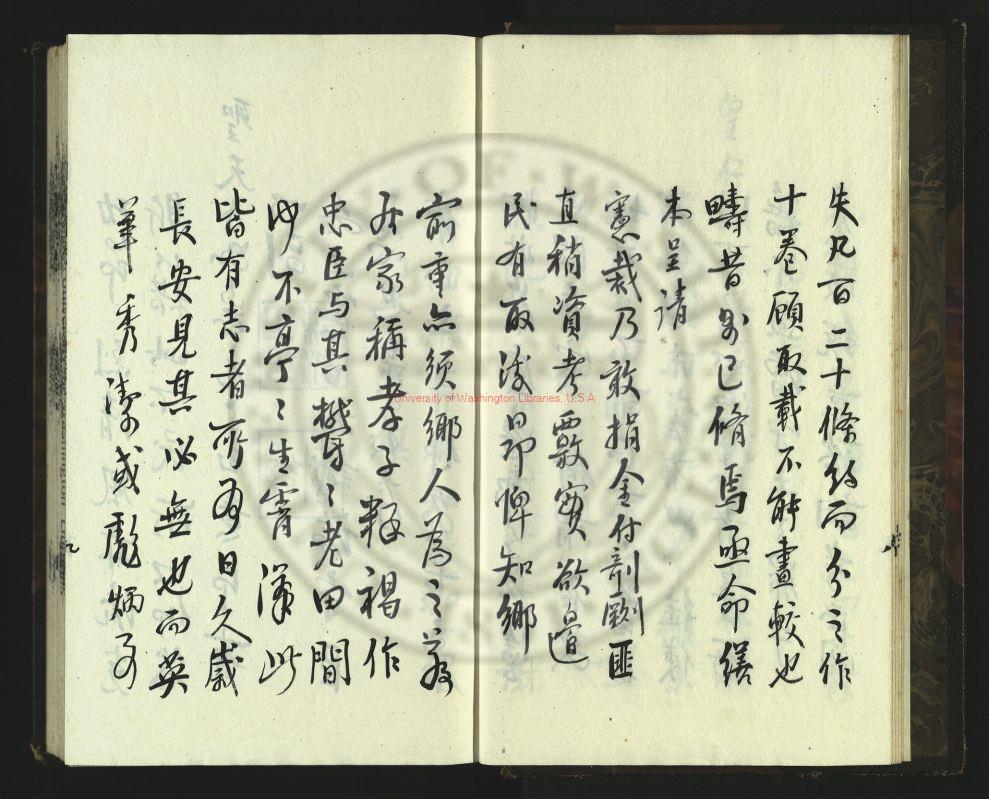 失凡百二十條約而分之作
十卷顧取載不能盡較也
疇昔則已脩焉亟命繕
本呈請
憲裁乃敢捐金付剞劂匪
直稍資考覈實欲邊
民有所淺日即俾知鄉
前重亦須鄉人為之若
居家稱孝子釋褐作
忠臣与其鬱〻老田間
不亭〻生霄漢此
皆有志者所為日久歲
長安見其必無也而英
華秀 或彪炳于
University of Washington Libraries, U.S.A